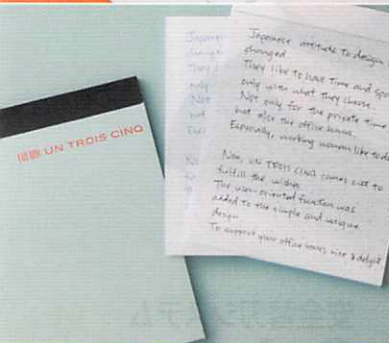 UN TROIS CINQ
Japanese attitude to design
changed.
They like to have Time and
only with what they choose.
Not only for the private time
but also the office hours.
Especially, working women like to
Now, UN TROIS CINQ comes out to
fulfill the wishes
The user-oriented function was
added to the simple and unique
design
To support your office hours nice & delight